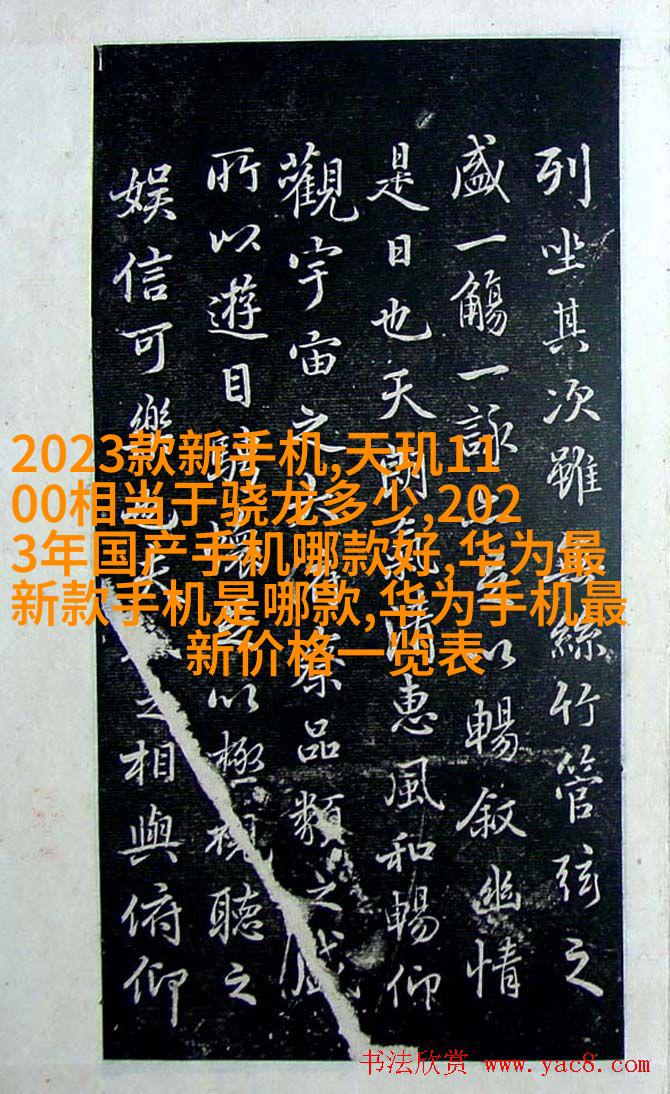 列坐其次雖無絲竹管弦之
盛一觴一詠亦足以暢叙幽情
是日也天朗氣清惠風和暢仰
觀宇宙之大俯察品類之盛
所以遊目騁懷足以極視聽之
娱信可樂也夫人之相與俯仰
2023款新手机,天玑11
00相当于骁龙多少,202
3年国产手机哪款好,华为最
新款手机是哪款,华为手机最
新价格一览表
书法欣赏 www.yac8.com